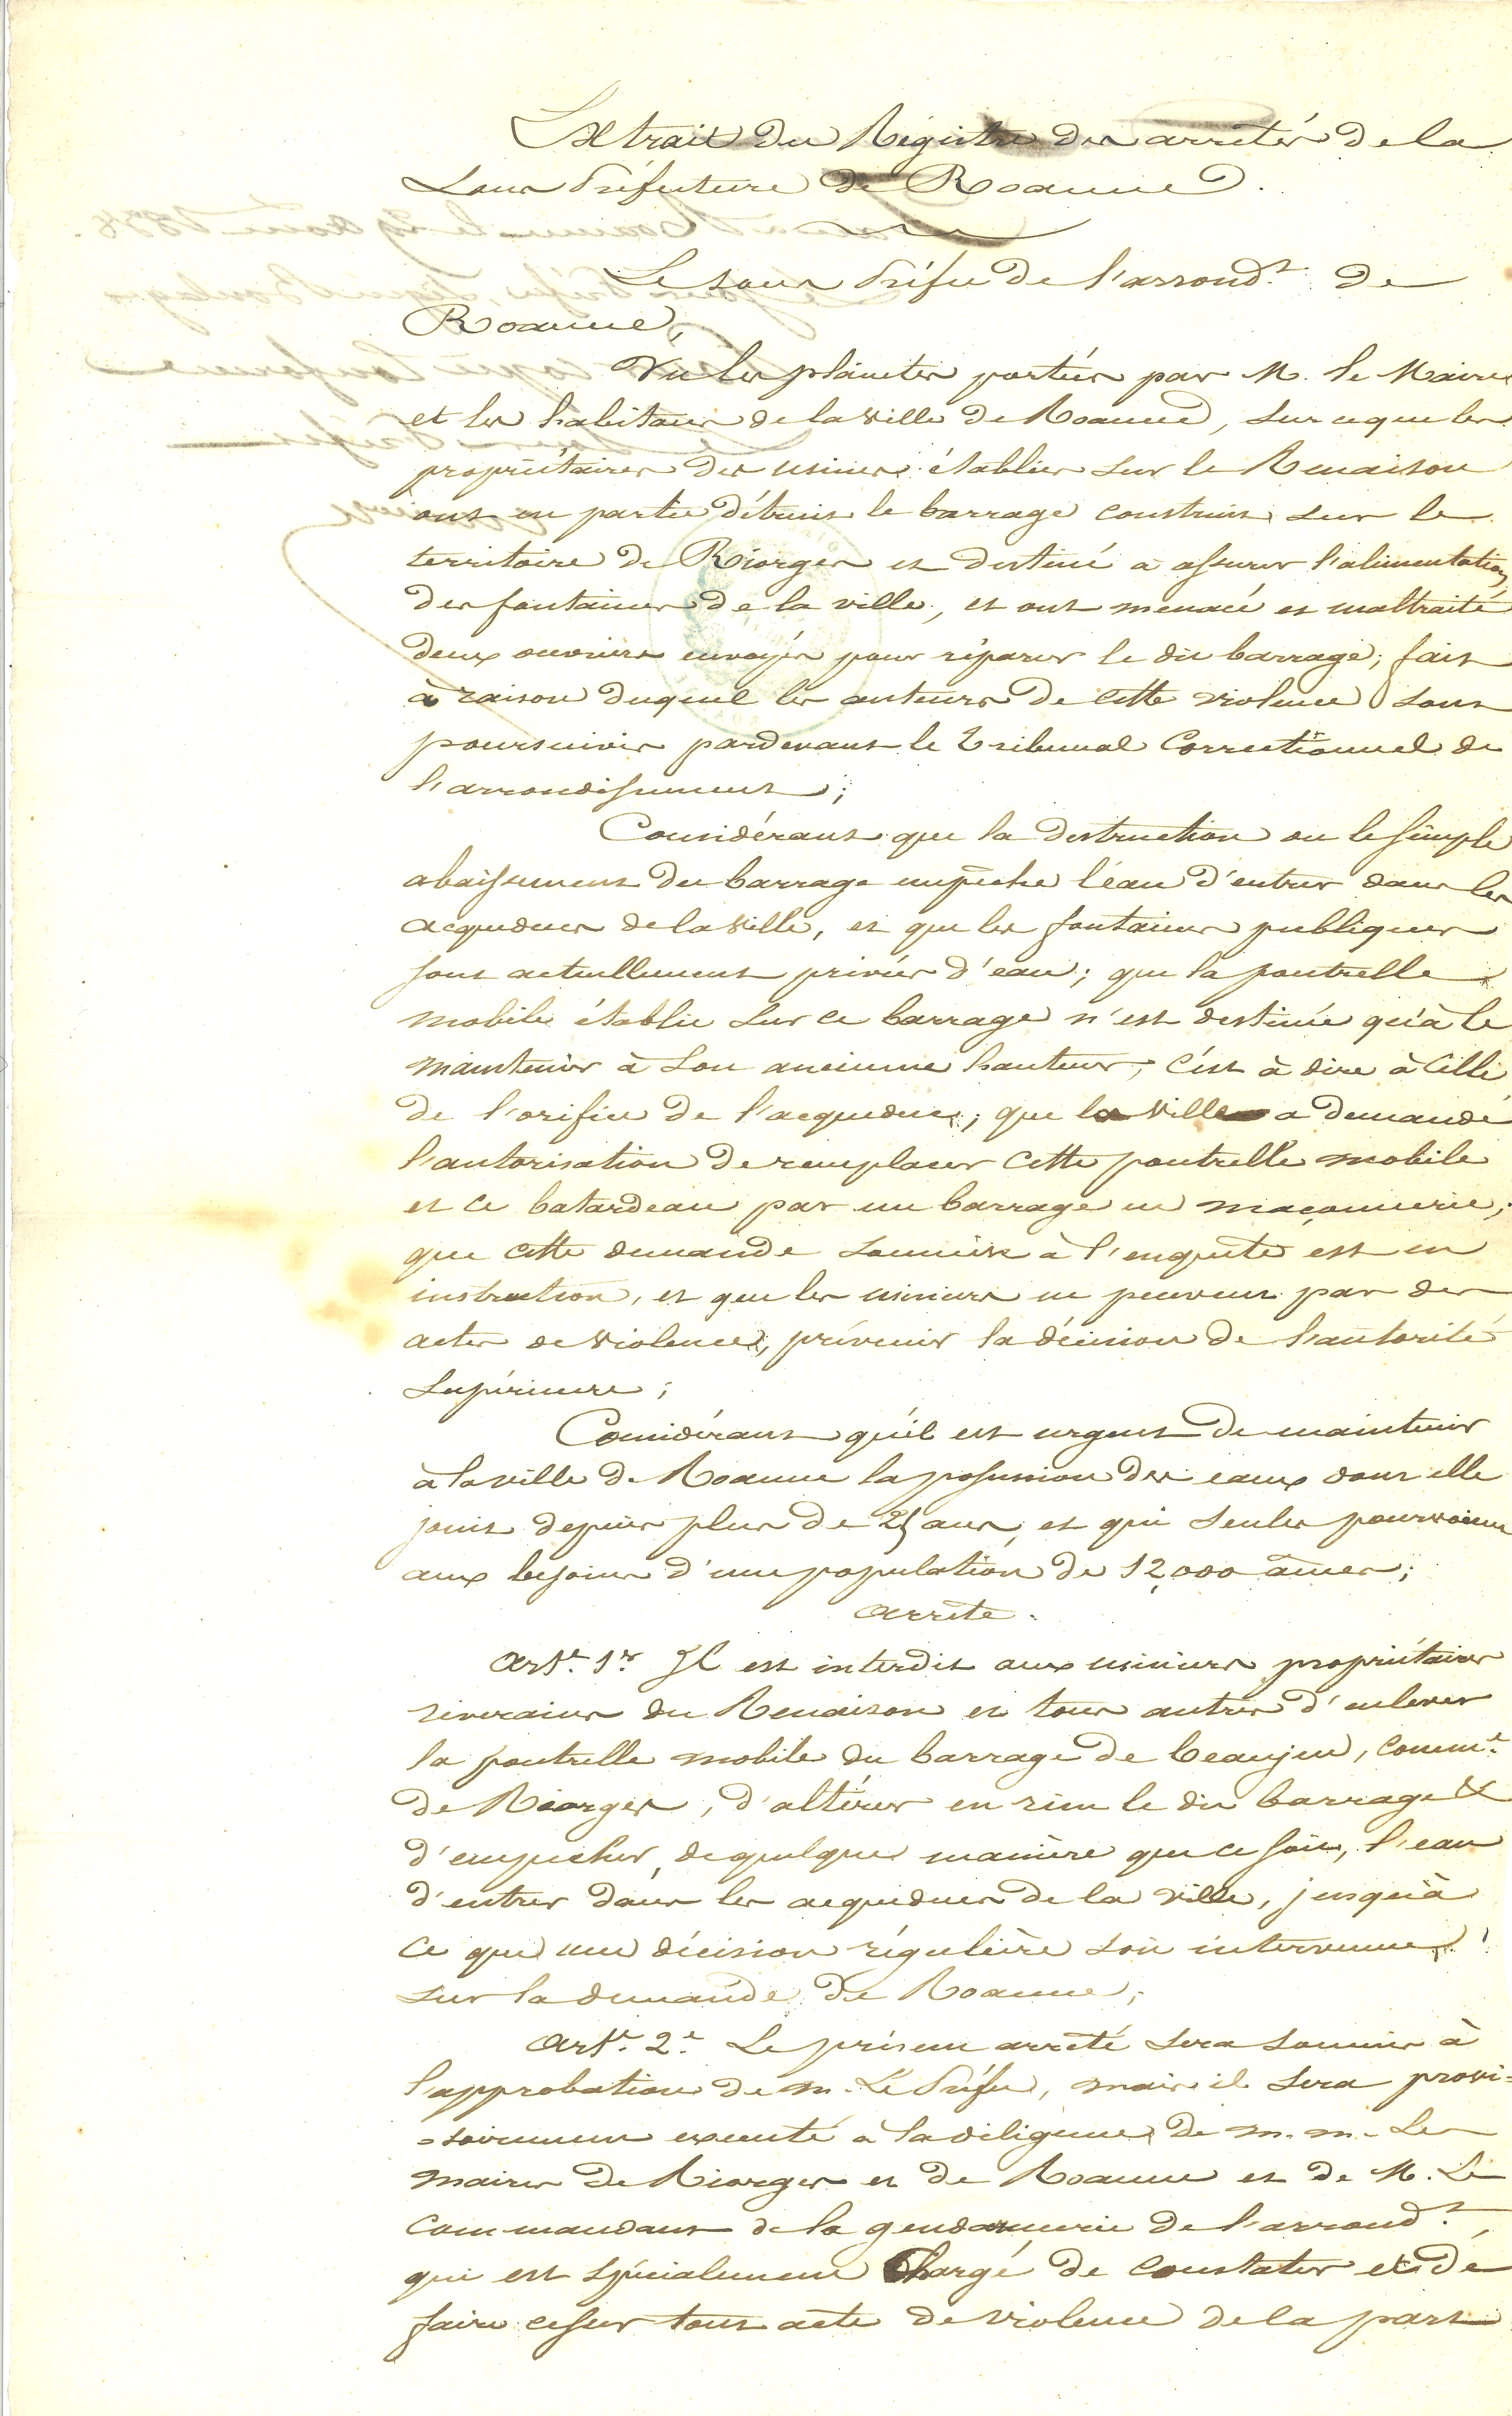 Extrait du Régistre des arrêtés de la
Sous Préfecture de Roanne.
Le sous Préfet de l'arrond.t de
Roanne,
Vu les plaintes portées par M. le Maire
et les habitans de la ville de Roanne, sur ce que les
propriétaires des usines établies sur le Renaison
ont en partie détruit le barrage construit sur le
territoire de Riorges et destiné à assurer l'alimentation
des fontaines de la ville, et ont menacé et maltraité
deux ouvriers envoyés pour réparer le dit barrage; fait
à raison duquel les auteurs de cette violence sont
poursuivis pardevant le Tribunal Correctionnel de
l'arrondissement;
Considérant que la destruction ou le simple
abaissement du barrage empêche l'eau d'entrer dans les
acqueducs de la ville, et que les fontaines publiques
sont actuellement privées d'eau; que la poutrelle
mobile établie sur ce barrage n'est destinée qu'à le
maintenir à son ancienne hauteur, c'est à dire à celle
de l'orifice de l'acqueduc; que la ville a demandé
l'autorisation de remplacer cette poutrelle mobile
et ce batardeau par un barrage en maçonnerie;
que cette demande soumise à l'enquête est en
instruction, et que les usiniers ne peuvent par des
actes de violence, prévenir la décision de l'autorité
supérieure;
Considérant qu'il est urgent de maintenir
à la ville de Roanne la possession des eaux dont elle
jouit depuis plus de 25 ans, et qui seules pourvoient
aux besoins d'une population de 12,000 âmes;
arrête.
Art.e 1.er Il est interdit aux usiniers propriétaires
riverains du Renaison et tous autres d'enlever
la poutrelle mobile du barrage de beaujeu, comm.e
de Riorges, d'altérer en rien le dit barrage &
d'empêcher, de quelque manière que ce soit, l'eau
d'entrer dans les acqueducs de la ville, jusqu'à
ce que une décision régulière soit intervenue
sur la demande de Roanne;
Art.e 2.e Le présent arrêté sera soumis à
l'approbation de m. Le Préfet, mais il sera provi=
=soirement executé à la diligence de m. m. Les
maires de Riorges et de Roanne et de M. Le
Commandant de la gendarmerie de l'arrond.t,
qui est spécialement Chargé de constater et de
faire cesser tout acte de violence de la part